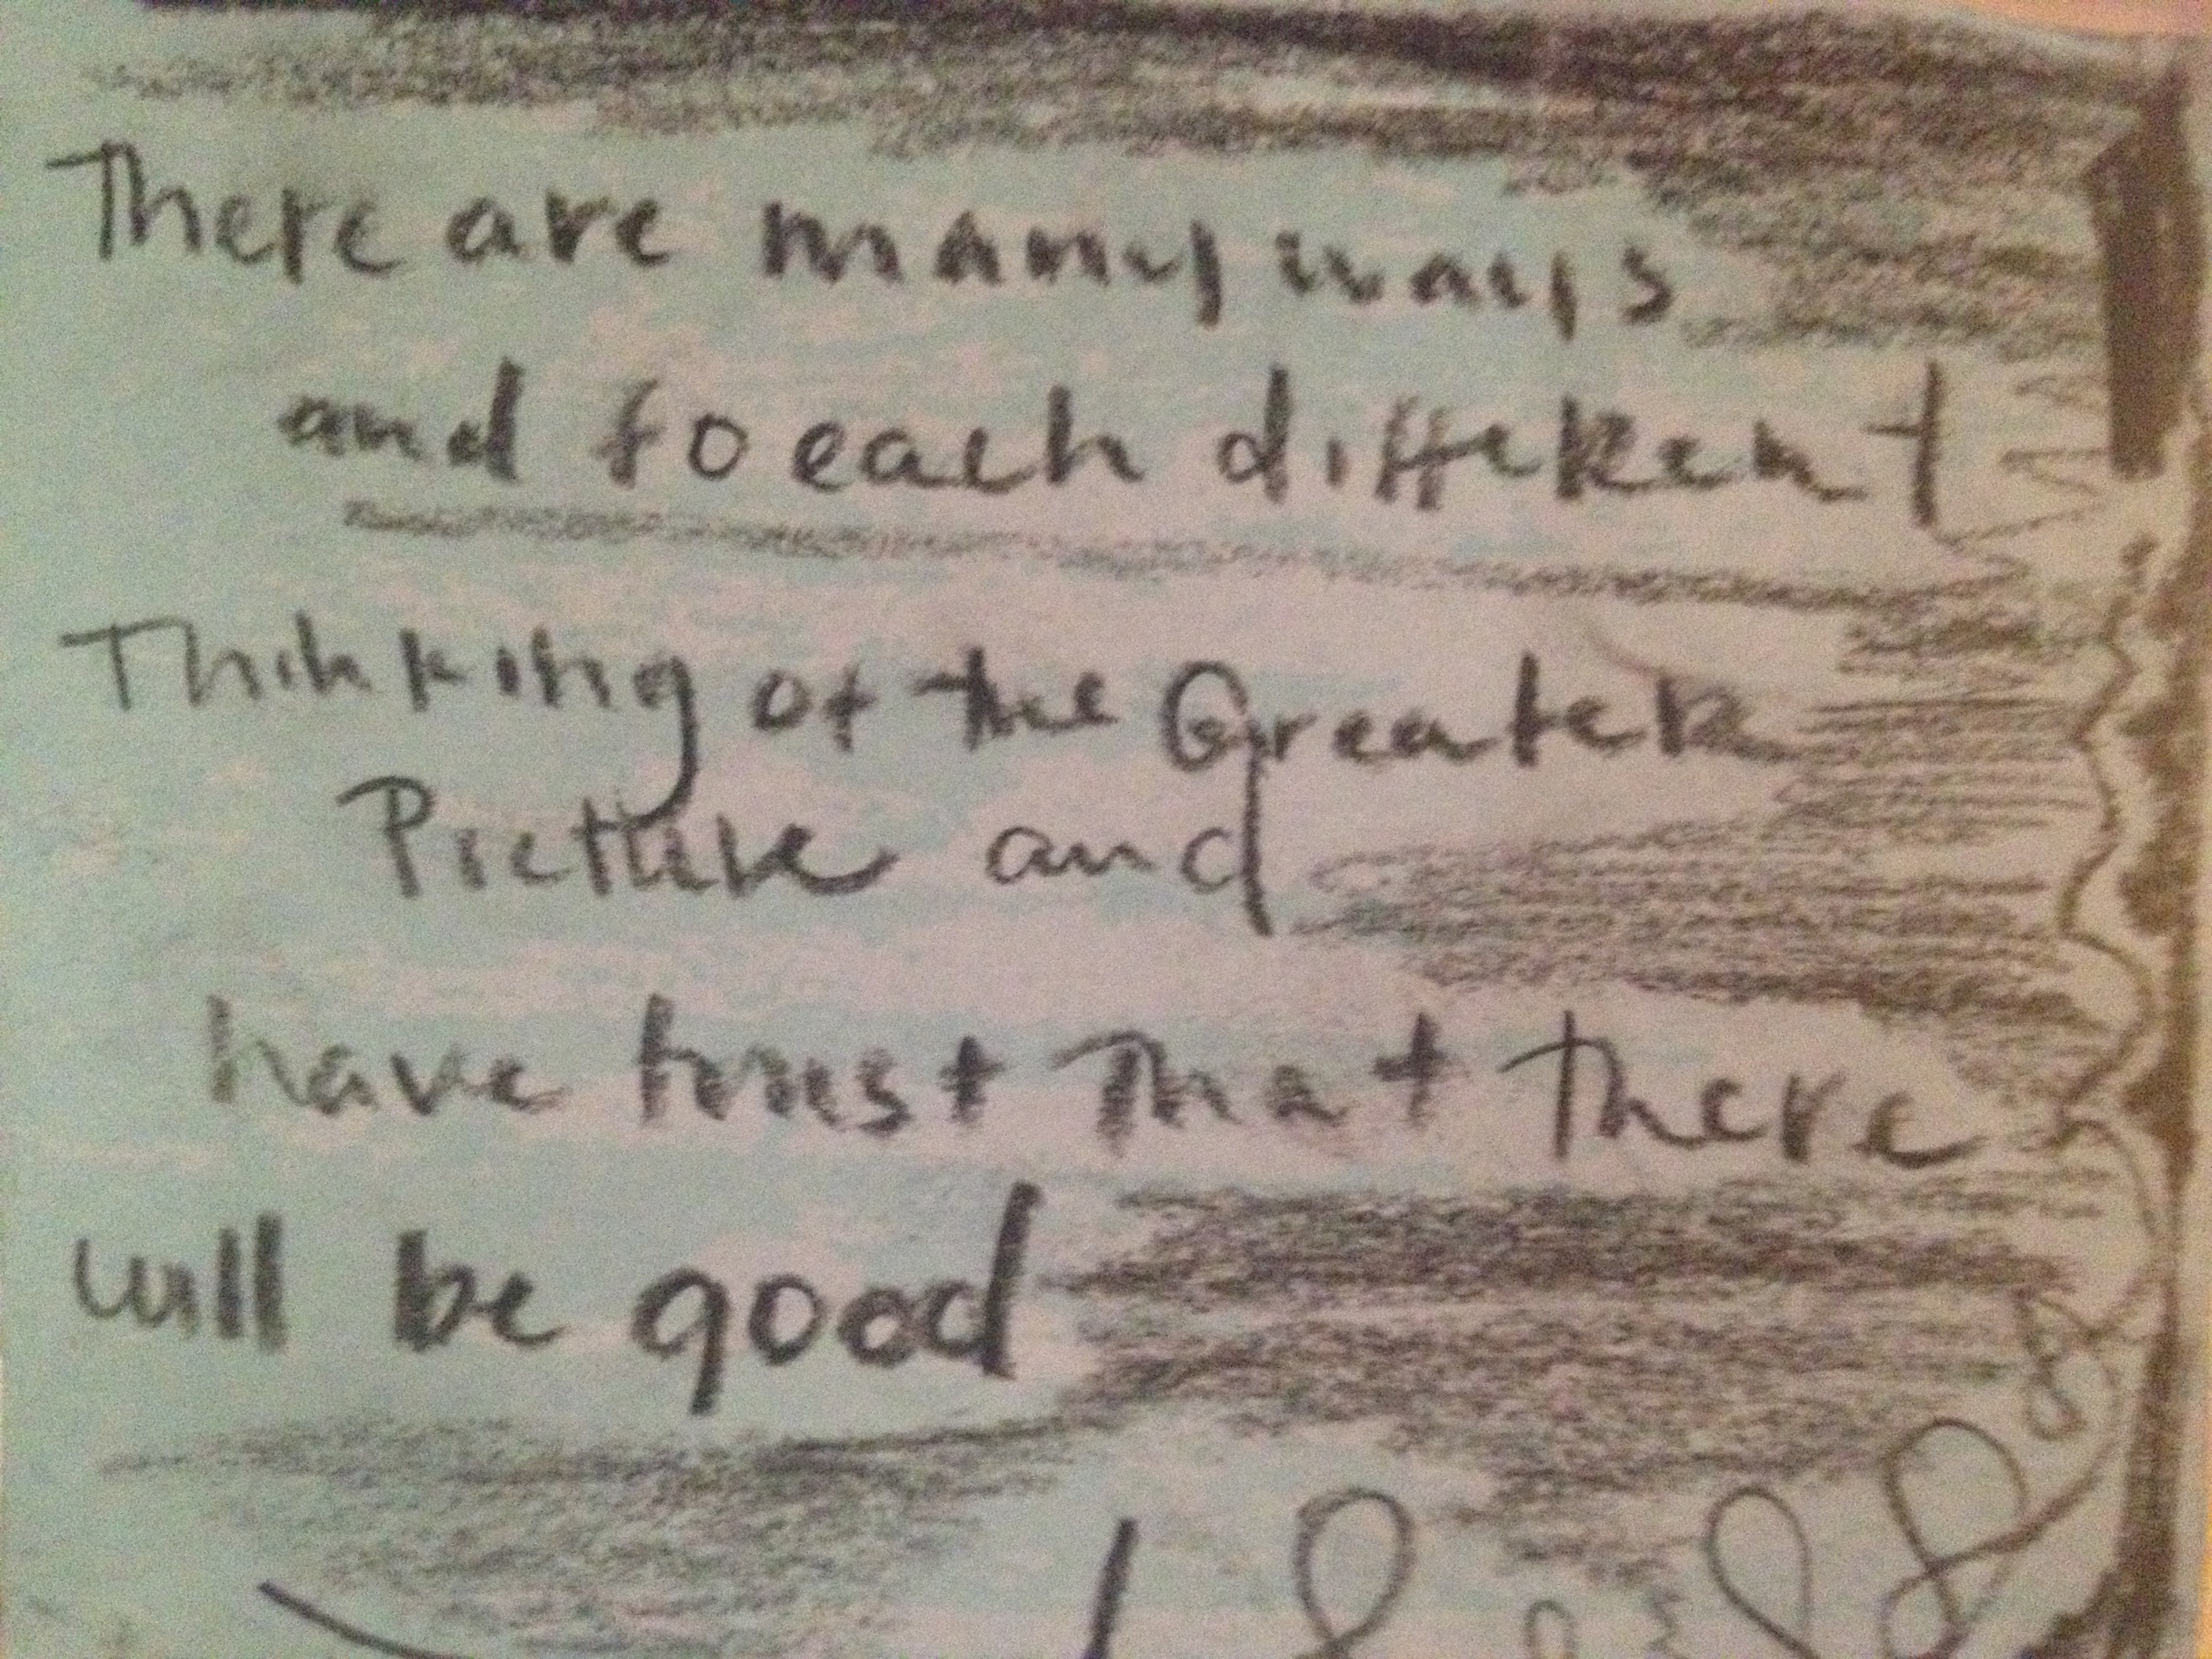 There are many ways
and to each different
Thinking of the Greater
Picture and
have trust that there
will be good